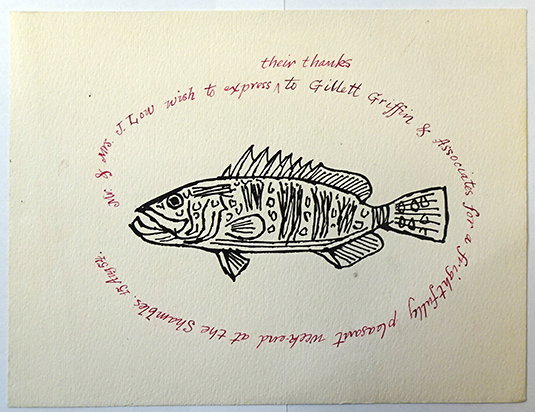 Mr & Mrs. J. Low wish to express ^ to Gillett Griffin & Associates for a frightfully pleasant week-end at the Shambles. 15 Aug 54.
their thanks